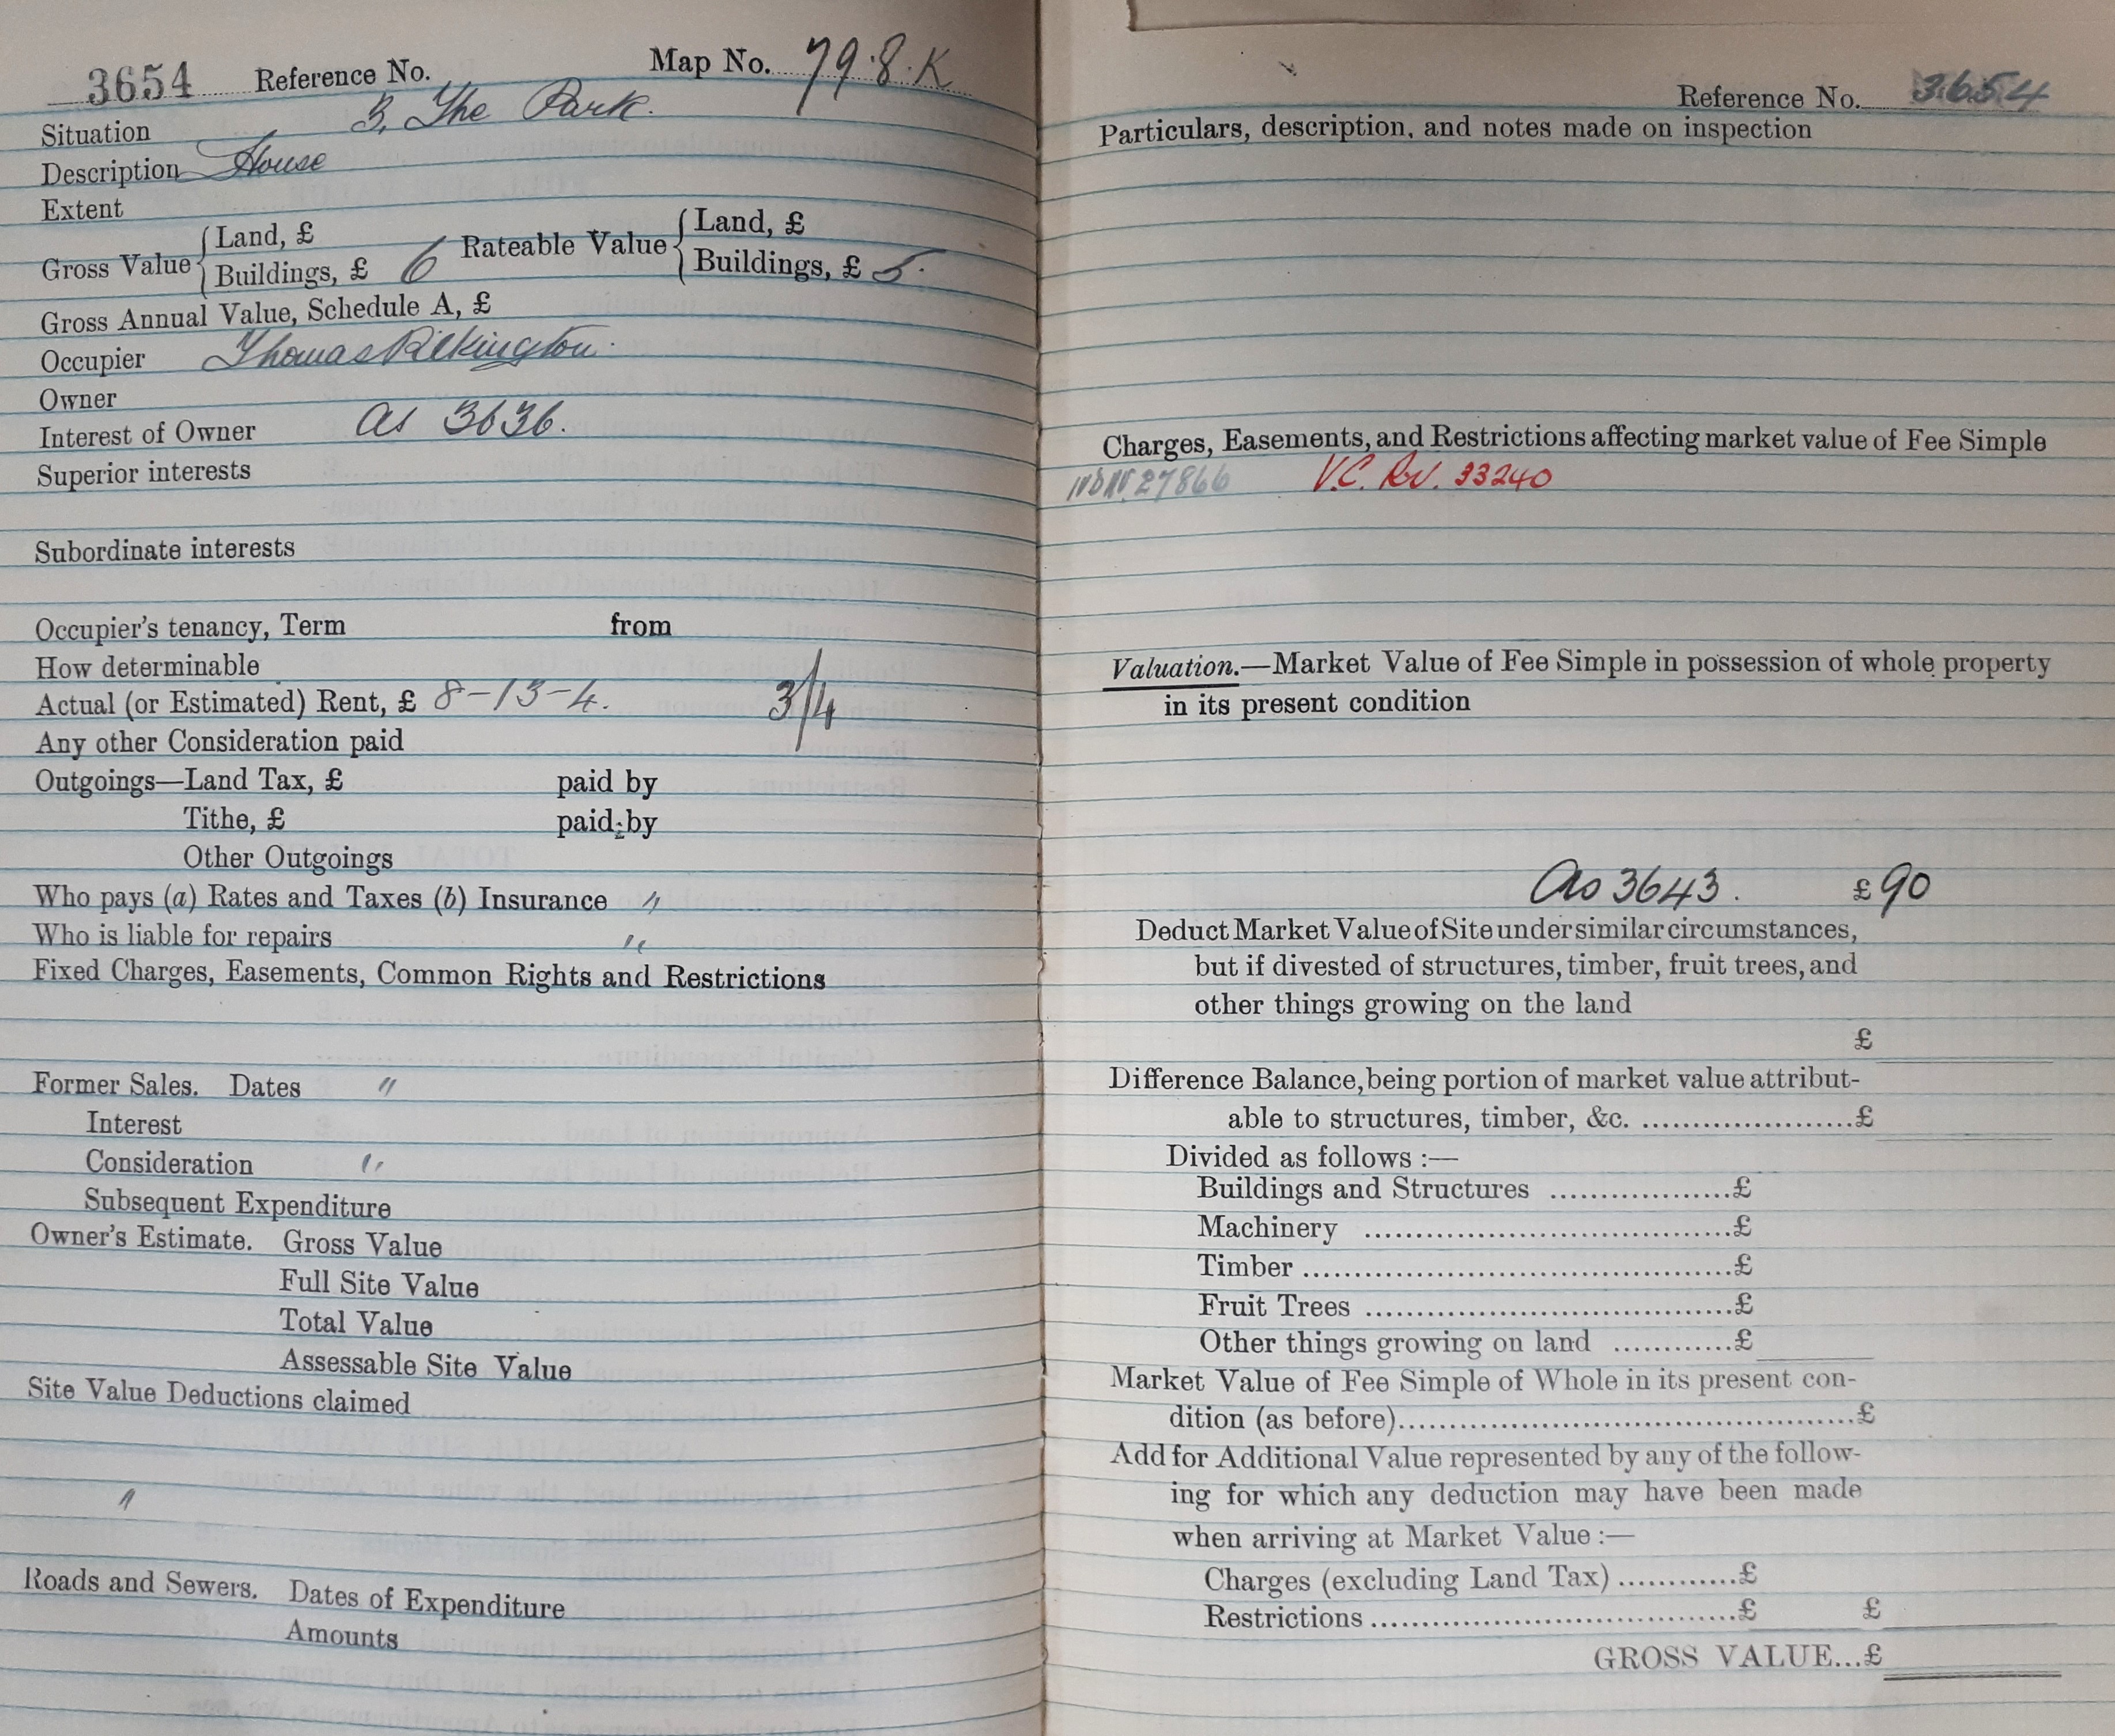 3654 Reference No. Map No. 79.8.K
Situation 3, The Park.
Description House
Extent
Gross Value { Land, £ Rateable Value { Land, £
Buildings, £ 6 Buildings, £ 5.
Gross Annual Value, Schedule A, £
Occupier Thomas Pilkington.
Owner
Interest of Owner as 3636.
Superior interests
Subordinate interests
Occupier's tenancy, Term from
How determinable
Actual (or Estimated) Rent, £ 8-13-4. 3/4
Any other Consideration paid
Outgoings—Land Tax, £ paid by
Tithe, £ paid by
Other Outgoings
Who pays (a) Rates and Taxes (b) Insurance "
Who is liable for repairs "
Fixed Charges, Easements, Common Rights and Restrictions
Former Sales. Dates "
Interest
Consideration "
Subsequent Expenditure
Owner's Estimate. Gross Value
Full Site Value
Total Value
Assessable Site Value
Site Value Deductions claimed
"
Roads and Sewers. Dates of Expenditure
Amounts
Reference No. 3654
Particulars, description, and notes made on inspection
Charges, Easements, and Restrictions affecting market value of Fee Simple
27866 V.C. Rev. 33240
Valuation.—Market Value of Fee Simple in possession of whole property
in its present condition
As 3643. £ 90
Deduct Market Value of Site under similar circumstances,
but if divested of structures, timber, fruit trees, and
other things growing on the land
£
Difference Balance, being portion of market value attribut-
able to structures, timber, &c. ....................£
Divided as follows :—
Buildings and Structures ..................£
Machinery ....................................£
Timber ..........................................£
Fruit Trees ....................................£
Other things growing on land ............£
Market Value of Fee Simple of Whole in its present con-
dition (as before)..........................................£
Add for Additional Value represented by any of the follow-
ing for which any deduction may have been made
when arriving at Market Value :—
Charges (excluding Land Tax) ............£
Restrictions ....................................£ £
GROSS VALUE...£